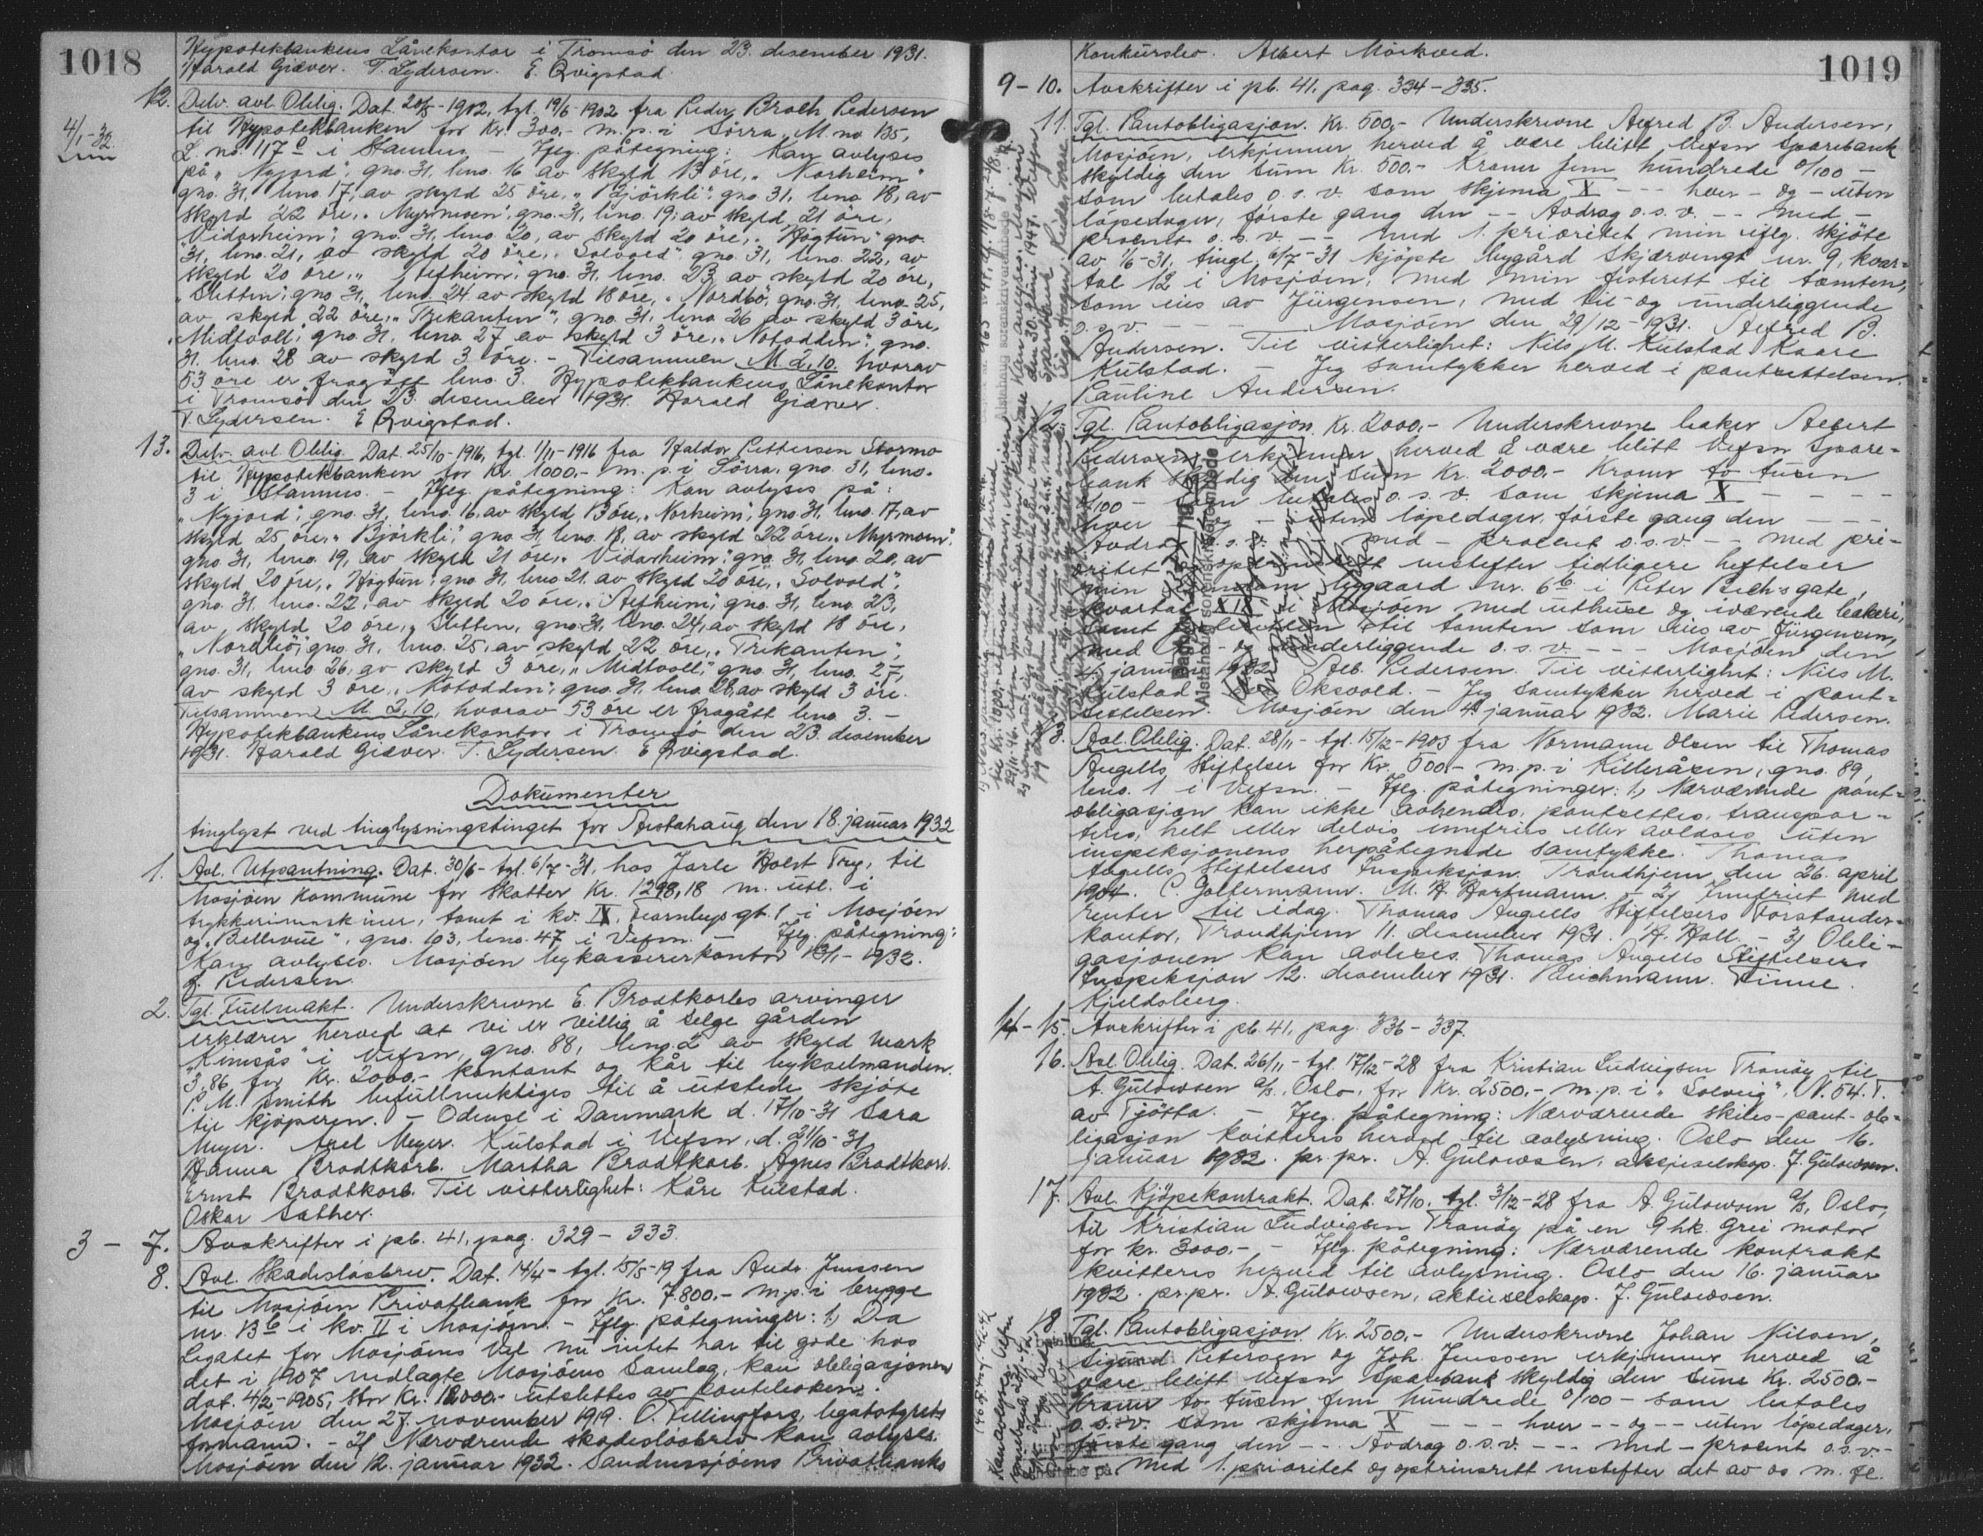 1018
Hypotekbankens Lånekontor i Tromsö den 23. desember 1931.
Harald Giæver. T. Lydersen. E. Qvigstad.
12. Delv. avl. Oblig. Dat. 20/5-1902, tgl. 19/6-1902 fra Peder Broch Pedersen
4/1-32.
til Hypotekbanken for Kr. 300,- m.p. i Sörra, M. no 135,
L. no. 117c i Stamnes - Iflg. påtegning: Kan avlyses
på "Nyjord", gno. 31, bno. 16 av skyld 13 öre, "Norheim"
gno. 31, bno. 17, av skyld 25 öre, "Björkli", gno 31, bno 18, av
skyld 22 öre, "Myrmoen", gno. 31, bno. 19, av skyld 21 öre,
"Vidarheim", gno. 31, bno. 20, av skyld 20 öre, "Högtun" gno.
31, bno. 21, av skyld 20 öre, "Solvold" gno. 31, bno. 22, av
skyld 20 öre, " heim", gno. 31, bno. 23 av skyld 20 öre,
"Sletten", gno. 31, bno. 24 av skyld 18 öre, "Nordbö", gno. 31, bno. 25,
av skyld 22 öre, "Trekanten", gno. 31, bno 26 av skyld 3 öre,
"Midtvoll", gno. 31, bno. 27 av skyld 3 öre, "Notodden", gno.
31, bno. 28 av skyld 3 öre. - Tilsammen M 2,10. hvorav
53 öre er fragått bno. 3. Hypotekbankens Lånekontor
i Tromsö den 23. desember 1931. Harald Giæver.
T. Lydersen. E Qvigstad.
13. Delv. avl. Oblig. Dat. 25/10-1916, tgl. 1/11-1916 fra Haldor Pettersen Stormo
til Hypotekbanken for Kr. 1000,- m.p. i Sörra, gno. 31, bno.
3 i Stamnes. - Iflg. påtegning: Kan avlyses på:
"Nyjord", gno. 31, bno. 16, av skyld 13 öre, "Norheim", gno 31, bno. 17, av
skyld 25 öre, "Björkli", gno 31, bno. 18, av skyld 22 öre, "Myrmoen",
gno. 31, bno. 19, av skyld 21 öre, "Vidarheim", gno. 31, bno 20, av
skyld 20 öre, "Högtun", gno 31, bno 21, av skyld 20 öre, "Solvold",
gno. 31, bno. 22, av skyld 20 öre, " heim", gno. 31, bno. 23,
av skyld 20 öre, "Sletten, gno. 31, bno. 24, av skyld 18 öre,
"Nordbö", gno. 31, bno. 25, av skyld 22 öre, "Trekanten",
gno. 31, bno 26, av skyld 3 öre, "Midtvoll", gno. 31, bno. 27,
av skyld 3 öre, "Notodden", gno. 31, bno. 28, av skyld 3 öre.
Tilsammen M 2,10, hvorav 53 öre er fragått bno. 3. -
Hypotekbankens Lånekontor i Tromsö den 23 desember
1931. Harald Giæver. T. Lydersen. E Qvigstad.
Dokumenter
tinglyst ved tinglysningstinget for Alstahaug den 18. januar 1932
1. Avl. Utpantning. Dat. 30/6- tgl. 6/7-31, hos Jarle Holst Try, til
Mosjöen kommune for skatter Kr. 1298,18 m. utl. i
trykkerimaskiner, tomt i kv. IX, gt. 1 i Mosjöen
og "Bellevue", gno. 103, bno. 47 i Vefsn. - Iflg. påtegning:
Kan avlyses. Mosjöen bykassererkontor 13/1-1932.
J. Pedersen.
2. Tgl. Fullmakt. Underskrevne E. Brodtkorbs arvinger
erklærer herved at vi er villig å selge gården
"Kimsås" i Vefsn, gno. 88, bno. 2 av skyld mark
3,86 for Kr. 2000,- kontant og kår til bykselmanden.
P. M. Smith befullmektiges til å utstede skjöte
til kjöperen. - Odense i Danmark d. 17/10-31 Sara
Meyer. Axel Meyer. Kulstad i Vefsn, d. 21/10-31
Hanna Brodtkorb. Martha Brodtkorb. Agnes Brodtkorb.
Ernst Brodtkorb. Til vitterlighet: Kåre Kulstad.
Oskar Sæther.
3 - 7. Avskrifter i pb. 41, pag. 329 - 333.
8. Avl. Skadeslösbrev. Dat. 14/4- tgl. 15/5-19 fra Andr. Jenssen
til Mosjöen Privatbank for Kr. 7800,- m.p. i brygge
nr. 13b i kv. II i Mosjöen. - Iflg. påtegninger: 1, Da
Legatet for Mosjöens Vel nu intet har til gode hos
det i 1907 nedlagte Mosjöens Samlag, kan obligasjonen
dat. 4/2-1905, stor Kr. 12000,- utslettes av panteboken.
Mosjöen den 27. november 1919. O. Fellingfors, legatstyrets
formann. - 2, Nærværende skadeslösbrev kan avlyses.
Mosjöen den 12. januar 1932. Sandnessjöens Privatbanks
1019
Konkursbo. Albert Mörkved.
9 - 10. Avskrifter i pb. 41, pag. 334 - 335.
11. Tgl. Pantobligasjon. Kr. 500,- Underskrevne Alfred B. Andersen,
Mosjöen, erkjenner herved å være blitt Vefsn Sparebank
skyldig den sum Kr. 500,- Kroner fem hundrede 0/100 -
som betales o.s.v. som skjema X - - - hver - og - uten
löpedager, förste gang den - - Avdrag o.s.v. - - med -
procent o.s.v. - - - med 1. prioritet min iflg. skjöte
av 1/6-31, tingl. 6/7-31 kjöpte bygård Skjærvengt nr. 9, kvar-
tal 12 i Mosjöen, med min festerett til tomten,
som eies av Jürgensen, med til- og underliggende
o.s.v. - - - Mosjöen den 29/12-1931. Alfred B.
Andersen. Til vitterlighet: Nils M. Kulstad Kaare
Kulstad. - Jeg samtykker herved i pantsettelsen.
Pauline Andersen.
12. Tgl. Pantobligasjon. Kr. 2000,- Underskrevne baker Albert
Pedersen erkjenner herved å være blitt Vefsn Spare-
bank skyldig den sum Kr. 2000,- Kroner to tusen
0/100 - som betales o.s.v. som skjema X - - - -
hver - og - uten löpedager, förste gang den - - -
Avdrag o.s.v. - - med - procent o.s.v. - - med pri-
oritet og oprinsrett nestefter tidligere heftelser
min bygaard nr. 6b i Peter Bechs gate,
kvartal XIX i Mosjöen med uthuse og iværende bakeri,
samt festeretten til tomten som eies av Jürgensen,
med til- og underliggende o.s.v. - - - Mosjöen den
4. januar 1932. Alb. Pedersen. Til vitterlighet: Nils M.
Kulstad. Oksvold. - Jeg samtykker herved i pant-
settelsen. Mosjöen den 4. januar 1932. Marie Pedersen.
Alstahaug sorenskriverembede
13. Avl. Oblig. Dat. 28/11- tgl. 15/12-1903 fra Normann Olsen til Thomas
Angells Stiftelser for Kr. 500,- m.p. i Killeråsen, gno. 89,
bno. 1 i Vefsn. - Iflg. påtegninger: 1, Nærværende pant-
obligasjon kan ikke avhendes, pantsettes, transpor-
teres, helt eller delvis innfries eller avlæses uten
inspeksjonens herpåtegnede samtykke. Thomas
Angells Stiftelsers Inspeksjon. Trondhjem den 26. april
1904. C. Goltermann. M. H. Hartmann. - 2, Innfriet med
renter til idag. Thomas Angells Stiftelsers Forstander-
kontor, Trondhjem 11. desember 1931. A. Holl. - 3, Obli-
gasjonen kan avleses. Thomas Angells Stiftelsers
Inspeksjon 12. desember 1931. Reichmann. Finne.
Kjeldsberg.
14 - 15. Avskrifter i pb. 41, pag. 336 - 337.
16. Avl. Oblig. Dat. 26/11- tgl. 17/12-28 fra Kristian Ludvigsen Tranöy til
A. Gulowsen a/s, Oslo, for Kr. 2500,- m.p. i "Solveig", N. 54. T.
av Tjötta. - Iflg. påtegning: Nærværende skibs-pant-ob-
ligasjon kvitteres herved til avlysning. Oslo den 16.
januar 1932. pr.pr. A. Gulowsen, aksjeselskap. J. Gulowsen.
17. Avl. Kjöpekontrakt. Dat. 27/10, tgl. 3/12-28 fra A. Gulowsen a/s, Oslo,
til Kristian Ludvigsen Tranöy på en 9 hk. Grei motor
for kr. 3000,- - Iflg. påtegning: Nærværende kontrakt
kvitteres herved til avlysning. Oslo den 16. januar
1932. pr.pr. A. Gulowsen, aktieselskap. J. Gulowsen.
18. Tgl. Pantobligasjon. Kr. 2500,- Underskrevne Johan Nilsen,
Sigurd Petersen og Joh. Jenssen erkjenner herved å
være blitt Vefsn Sparebank skyldig den sum Kr. 2500,-
Kroner to tusen fem hundrede 0/100 - som betales
o.s.v. som skjema X - - - hver - - og - - uten löpedager,
förste gang den - - - Avdrag o.s.v. - - - med - procent o.s.v.-
- - Med 1. prioritet og oprinsrett nestefter det av os m. fl.